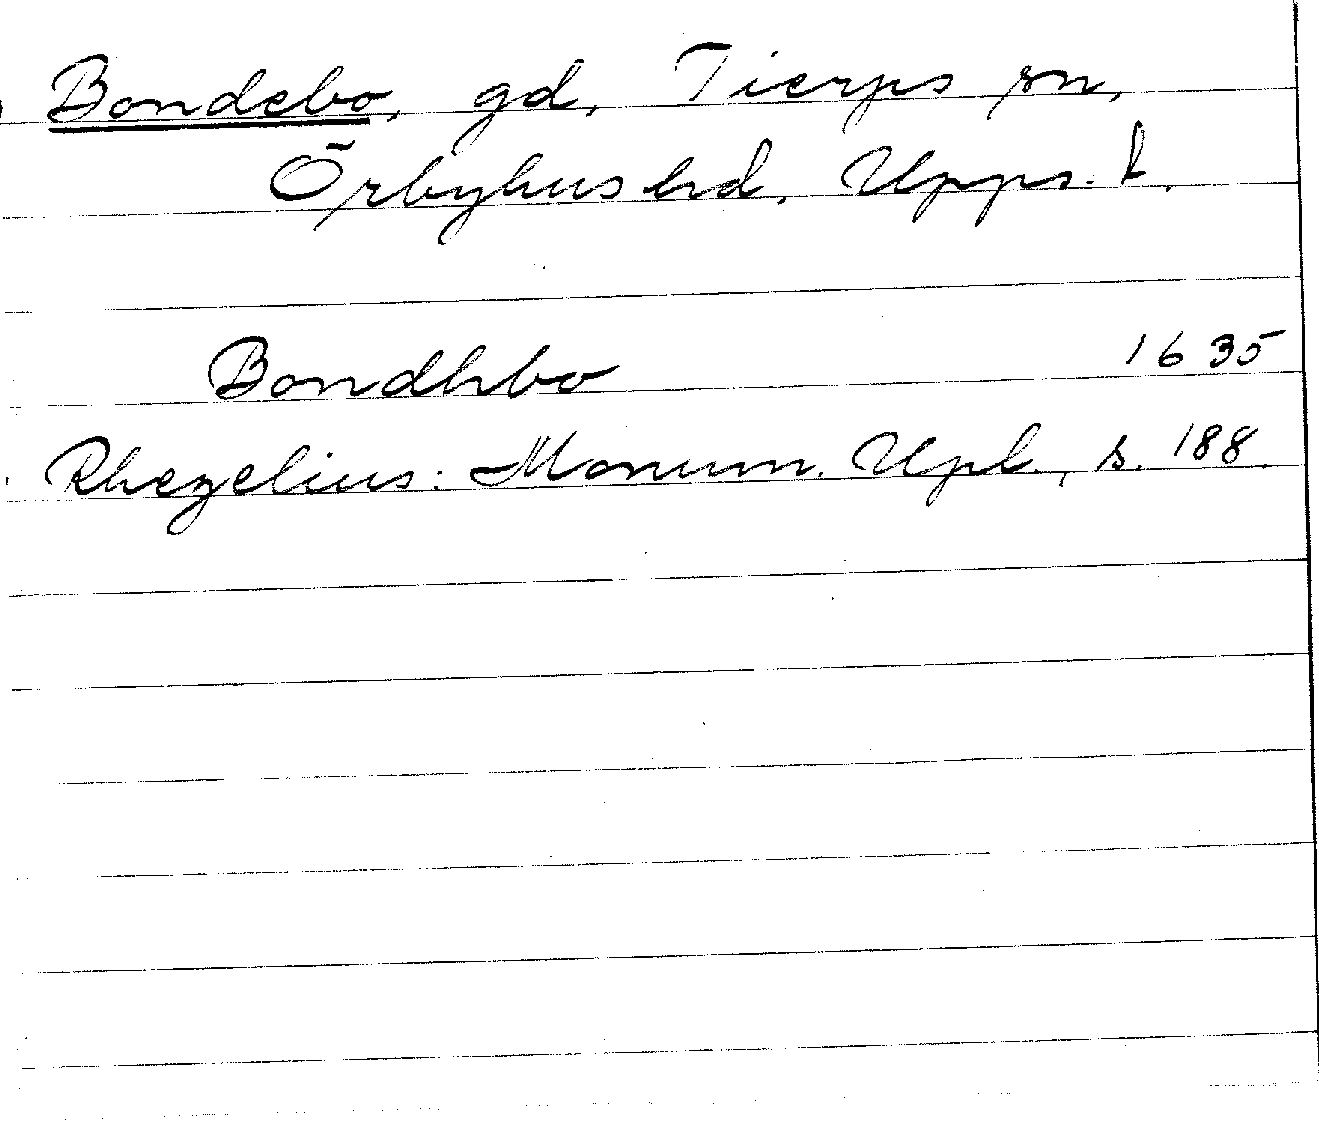 Bondebo, gd, Tierps sn,
Örbyhus hd, Upps. l.
Bondhbo 1635
Rhezelius: Monum. Upl., s. 188.